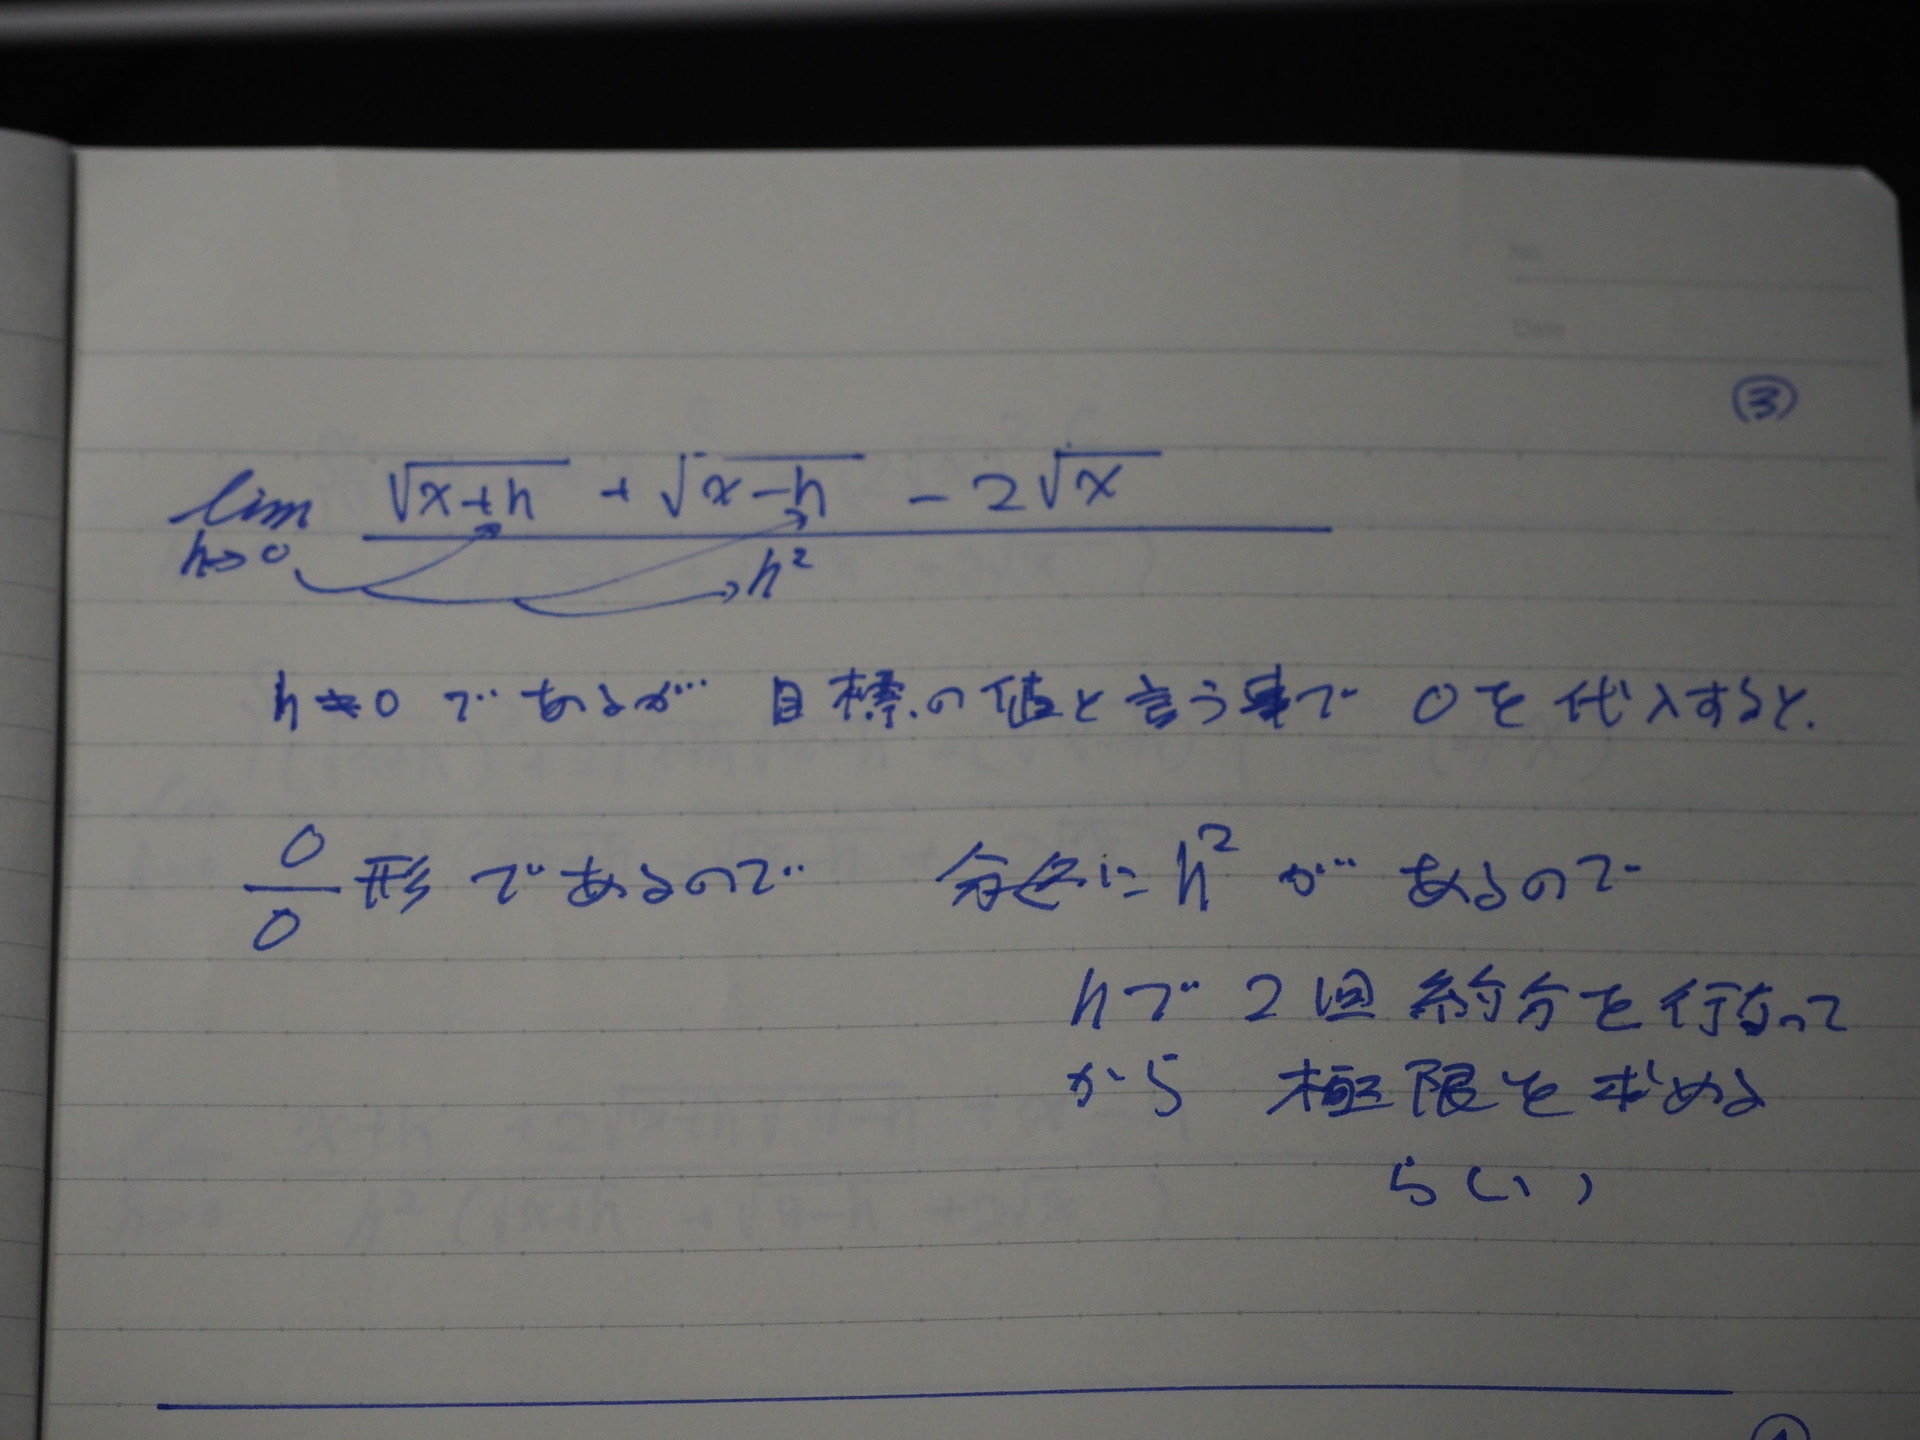 No.
Date
③
lim h→0 (√(x+h) + √(x−h) − 2√x) / h²
h≠0 であるが 目標の値と言う事で 0を代入すると.
0/0 形であるので 分母に h² が あるので
hで 2回 約分を行なって
から 極限を求める
らしい